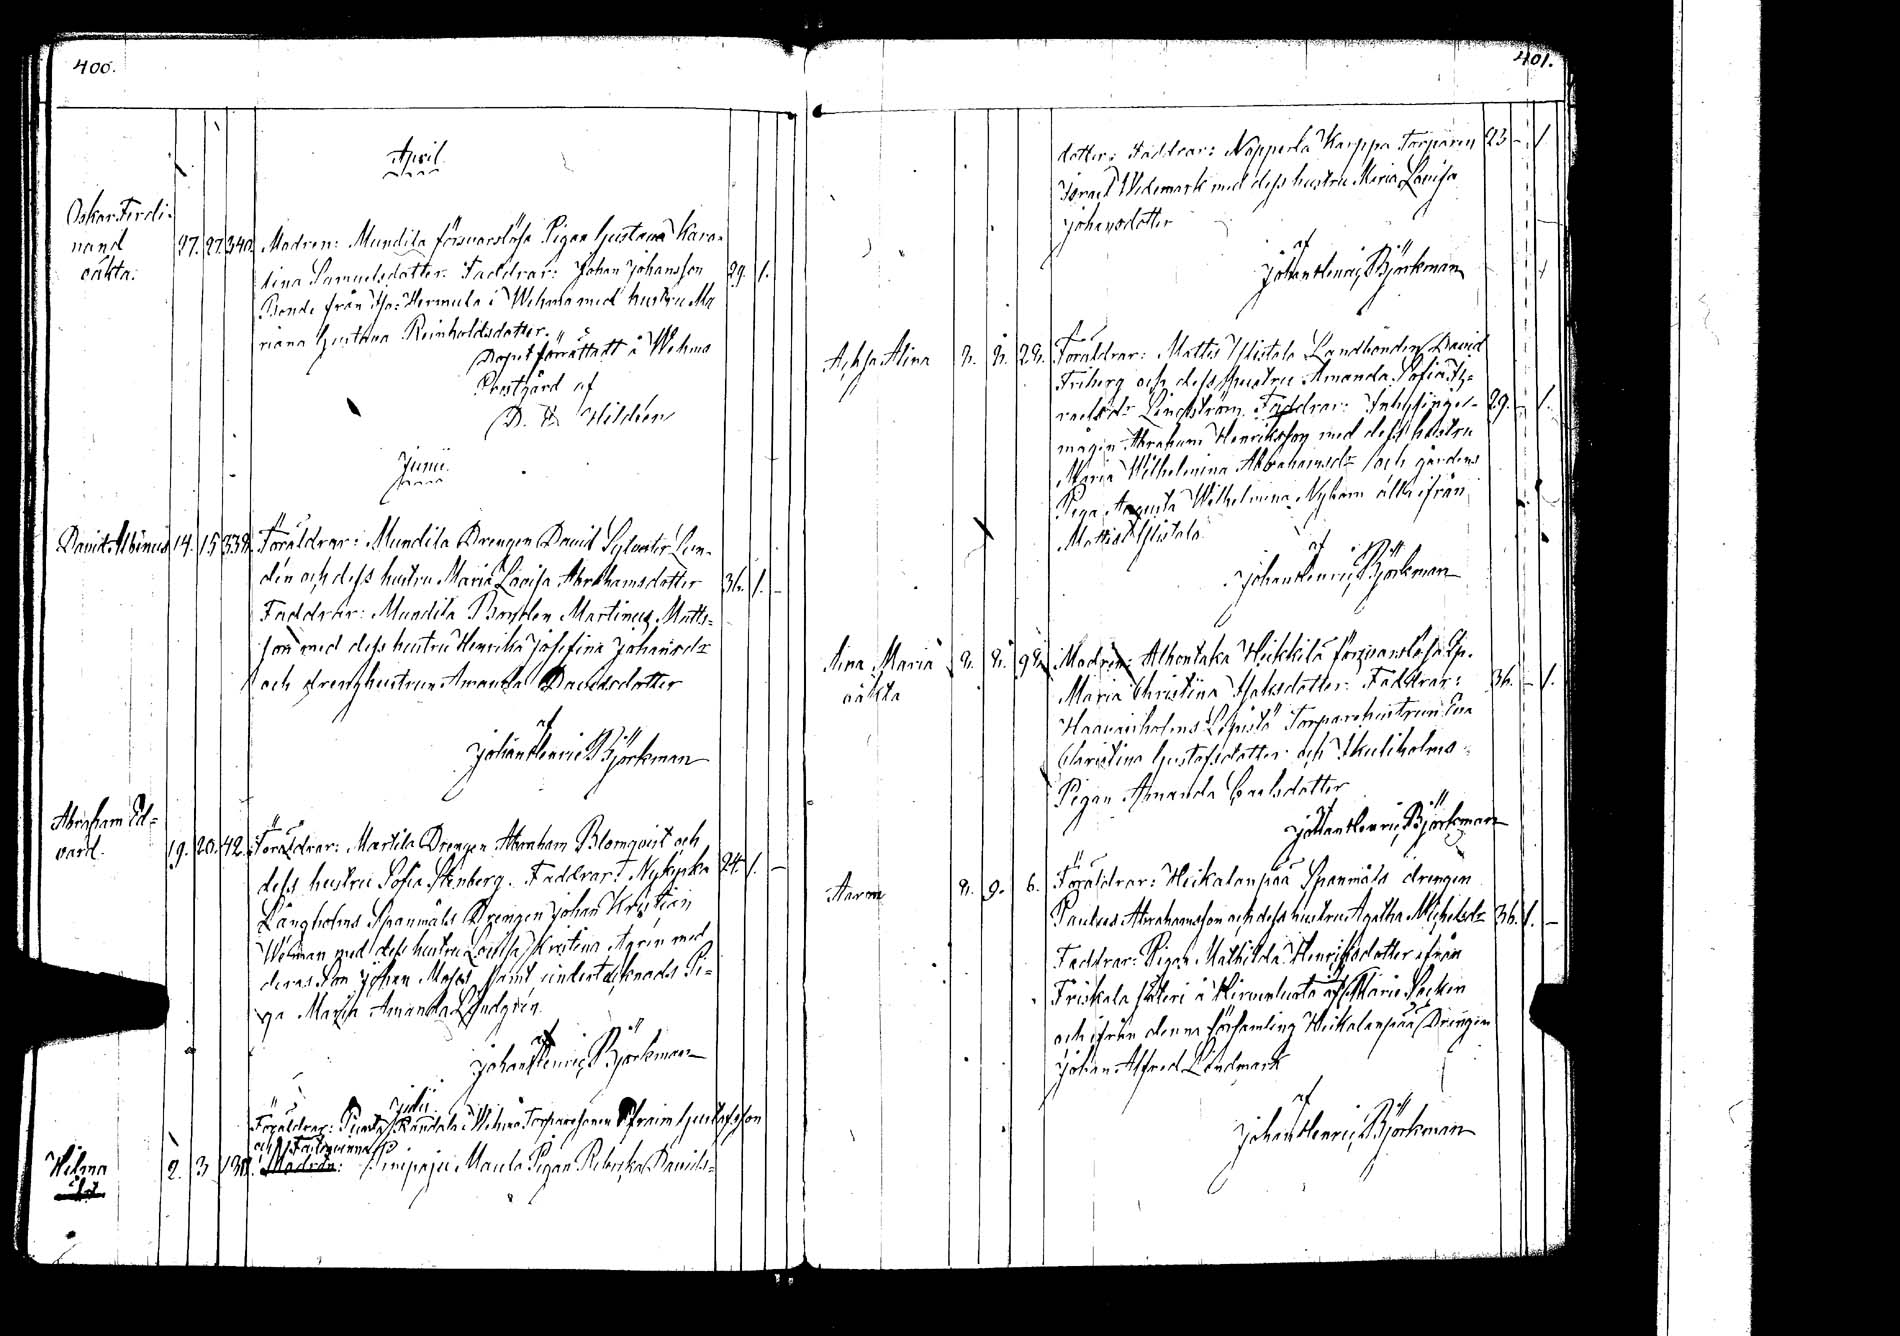 400.
April
Oskar Ferdi-
nand
oäkta.
27. 27. 340.
Modren: Mundila försvarslösa Pigan Gustava Karo-
lina Samuelsdotter. Faddrar: Johan Johansson
29. 1.
Bonde från Hermula i Wehmo med hustru Ma
riana Gustava Reinholdsdotter.
Dopet förrättadt å Wehmo
Prestgård af
D. H. Hildéen
Junii
David Albinus 14. 15. 338.
Föräldrar: Mundila Drengen David Sylvester Lun-
dén och dess hustru Maria Lovisa Abrahamsdotter
36. 1. -
Faddrar: Mundila Bonden Martinus Matts-
son med dess hustru Henrika Josefina Johansdr
och drenghustrun Amanda Davidsdotter
af
Johan Henric Björkman
Abraham Ed-
vard.
19. 20. 42.
Föräldrar: Martila Drengen Abraham Blomqvist och
dess hustru Sofia Stenberg. Faddrar: Nykyrko
24. 1. -
Långholms Spanmåls Drengen Johan Kristian
Weman med dess hustru Lovisa Kristina Agrén med
deras Son Johan Moses samt undertecknads Pi-
ga Maria Amanda Lindgrén.
af
Johan Henric Björkman
Julii.
Föräldrar: Kandola i Wehmo Torparesonen Efraim Gustafsson
och Fästeqvinna
Hilma
2. 3. 138.
Modren: Pinipaju Maula Pigan Rebecka Davids-
401.
dotter. Faddrar: Nopperla Karppa Torparen
23 - 1
Israel Widemark med dess hustru Maria Lovisa
Johansdotter
af
Johan Henric Björkman
Achsa Alina 8. 8. 28.
Föräldrar: Mattis Ylistalo Landbonden David
Friberg och dess hustru Amanda Sofia Is-
raelsdr Lindström. Faddrar: Inhysinges-
29. - 1.
mågen Abraham Henriksson med dess hustru
Maria Wilhelmina Abrahamsdr och gårdens
Piga Augusta Wilhelmina Nybom alla ifrån
Mattis Ylistalo
af
Johan Henric Björkman
Aina Maria
oäkta
8. 8.
Modren: Alhontaka Heikkilä försvarslösa Ip.
Maria Christina Isaksdotter. Faddrar:
36. - 1.
Torparehustrun Eva
Christina Gustafsdotter och
Pigan Amanda Carlsdotter
af
Johan Henric Björkman
Aaron
8. 9. 6.
Föräldrar: Heikolanpää Spanmåls drengen
Paulus Abrahamsson och dess hustru Agatha Michelsdr
36. 1. -
Faddrar: Pigan Mathilda Henriksdotter ifrån
Friskala Säteri å Hirvenluoto af S:t Marie Socken
och ifrån denna församling Heikolanpää Drengen
Johan Alfred Lindmark
af
Johan Henric Björkman